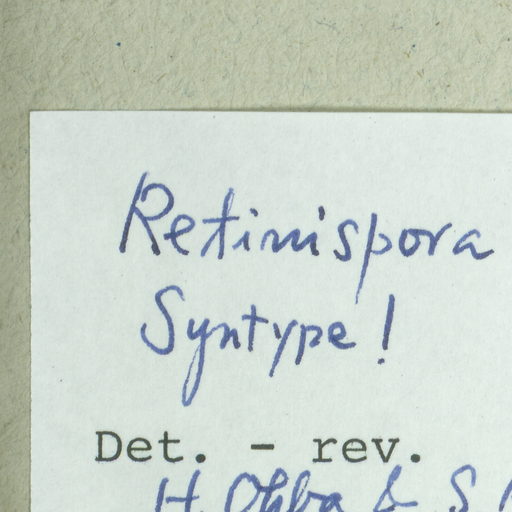 Retinispora
Syntype!
Det. - rev.
H. Ohba & S.